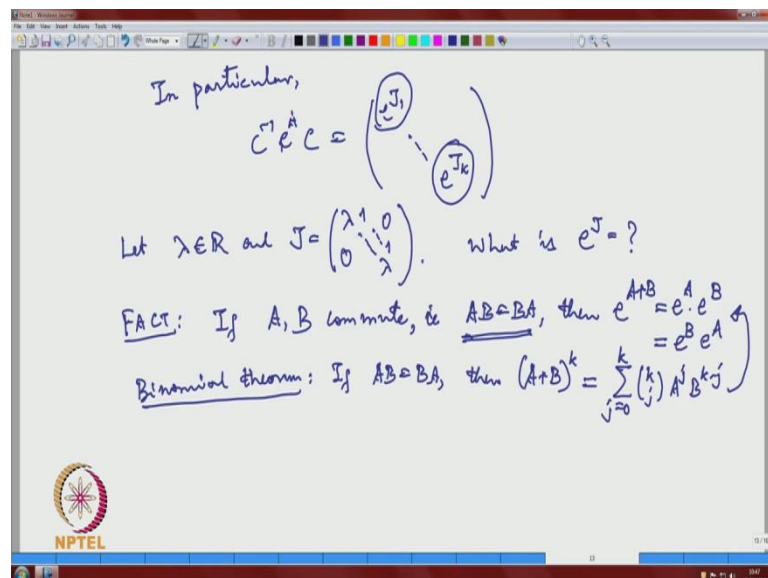 Note1 - Windows Journal
File Edit View Insert Actions Tools Help
Whole Page
In particular,
C⁻¹ e^A C = (e^{J₁} ⋱ e^{J_k})
Let λ∈ℝ and J = (λ 1 0 ⋱ 1 0 λ). What is e^J = ?
FACT: If A, B commute, ie AB=BA, then e^{A+B} = e^A · e^B
= e^B e^A
Binomial theorem: If AB=BA, then (A+B)^k = ∑_{j=0}^{k} (k j) A^j B^{k-j}
NPTEL
13